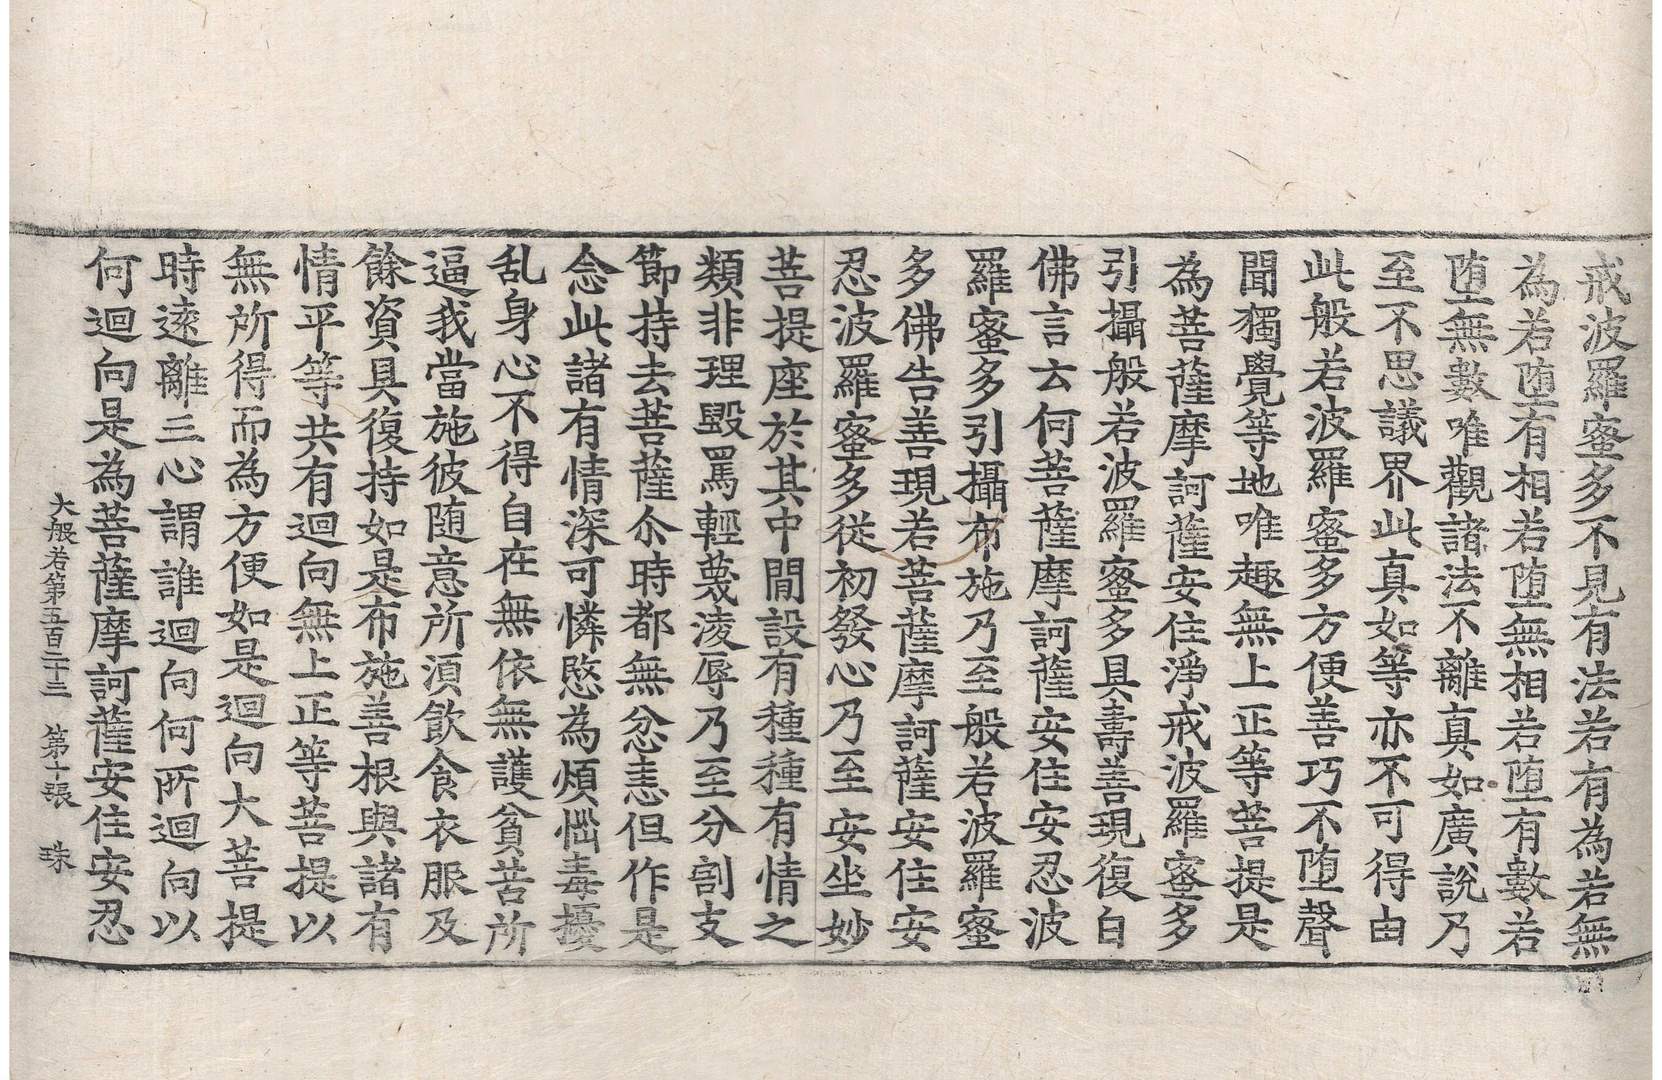 戒波羅蜜多不見有法若有為若無
為若堕有相若堕無相若堕有數若
堕無數唯觀諸法不離真如廣說乃
至不思議界此真如等亦不可得由
此般若波羅蜜多方便善巧不堕聲
聞獨覺等地唯趣無上正等菩提是
為菩薩摩訶薩安住淨戒波羅蜜多
引攝般若波羅蜜多具壽善現復白
佛言云何菩薩摩訶薩安住安忍波
羅蜜多引攝布施乃至般若波羅蜜
多佛告善現若菩薩摩訶薩安住安
忍波羅蜜多従初發心乃至安坐妙
菩提座於其中間設有種種有情之
類非理毀罵輕蔑淩辱乃至分割支
節持去菩薩尒時都無忿恚但作是
念此諸有情深可憐愍為煩惱毒擾
乱身心不得自在無依無護貧苦所
逼我當施彼随意所湏飲食衣服及
餘資具復持如是布施善根與諸有
情平等共有迴向無上正等菩提以
無所得而為方便如是迴向大菩提
時遠離三心謂誰迴向何所迴向以
何迴向是為菩薩摩訶薩安住安忍
大般若第五百二十三　第十張　珠